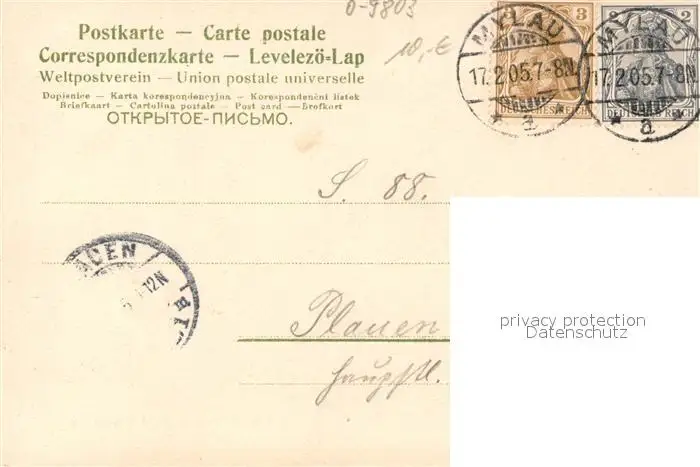 0-9803
10,-€
Postkarte — Carte postale
Correspondenzkarte — Levelező-Lap
Weltpostverein — Union postale universelle
Dopisnice — Karta korespondencyjna — Korespondenční lístek
Briefkaart — Cartolina postale — Post card — Brefkort
ОТКРЫТОЕ-ПИСЬМО.
MYLAU
17.2.05.7-8N.
* a
3
DEUTSCHES REICH
MYLAU
17.2.05.7-8N
* a
2 2
DEUTSCHES REICH
S. 88.
12N
Plauen
Hauptstl.
privacy protection
Datenschutz